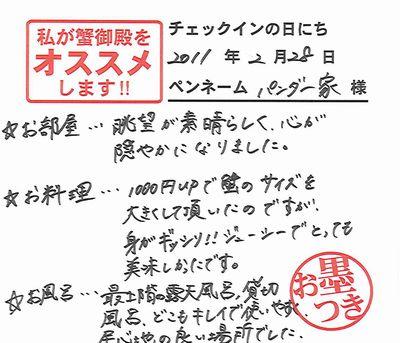 私が蟹御殿を
オススメ
します!!
チェックインの日にち
2011 年 2 月 28 日
ペンネーム パンダー家 様
☆お部屋… 眺望が素晴らしく、心が
穏やかになりました。
☆お料理… 1000円UPで蟹のサイズを
大きくして頂いたのですが、
身がギッシリ!!ジューシーでとっても
美味しかたです。
☆お風呂… 最上階の露天風呂、貸切
風呂、どこもキレイで使いやすく
居心地の良い場所でした。
お墨つき